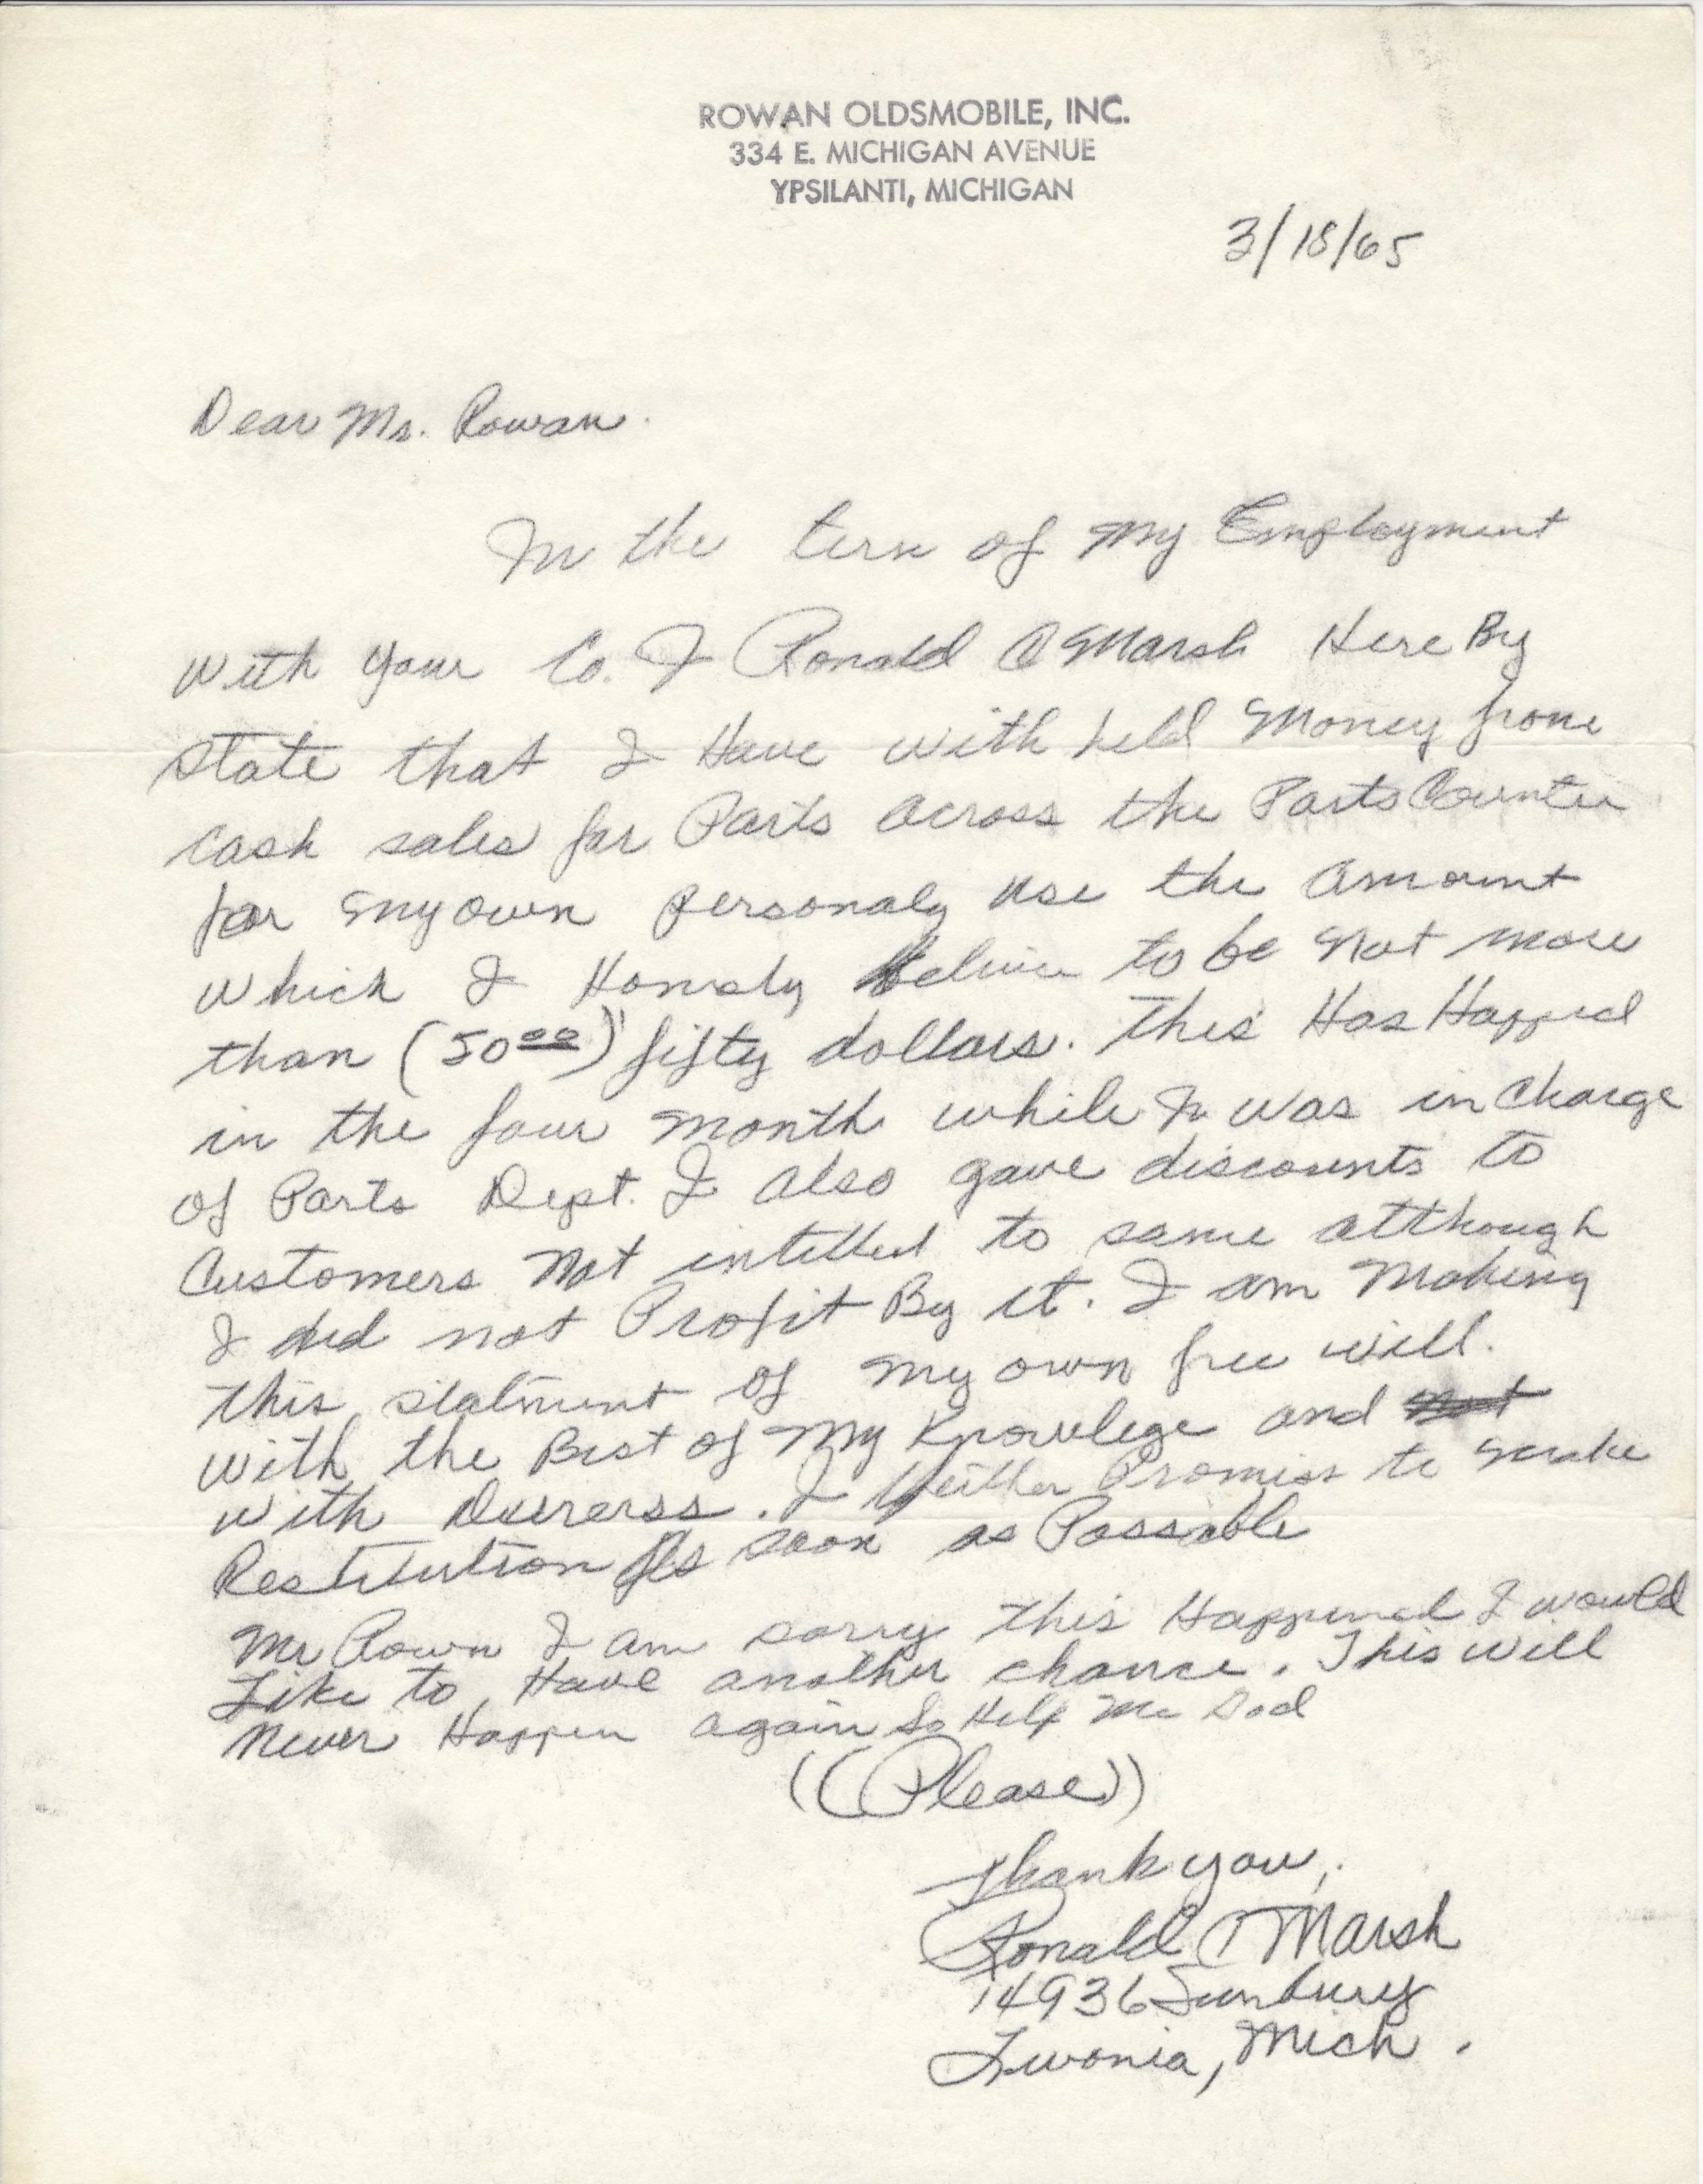 ROWAN OLDSMOBILE, INC.
334 E. MICHIGAN AVENUE
YPSILANTI, MICHIGAN
3/18/65
Dear Mr. Rowan.
In the term of My Employment
with your Co. I Ronald C Marsh Here By
state that I Have with held Money from
Cash sales for Parts across the Parts Counter
for my own personaly use the amount
which I Honesly belive to be not more
than (50 00) fifty dollars. This Has Happed
in the four month while I was in Charge
of Parts Dept. I also gave discounts to
Customers Not intitled to same although
I did not Profit By it. I am Making
this statment of my own free will.
with the Best of My Knowlege and not
with Dureress. I Promiss to make
Restitution As soon as Possable
Mr Rown I am sorry this Happened I would
Like to Have another chance. This will
Never Happen again So Help Me God
((Please))
Thank you,
Ronald C Marsh
14936 Sunbury
Livonia, Mich.